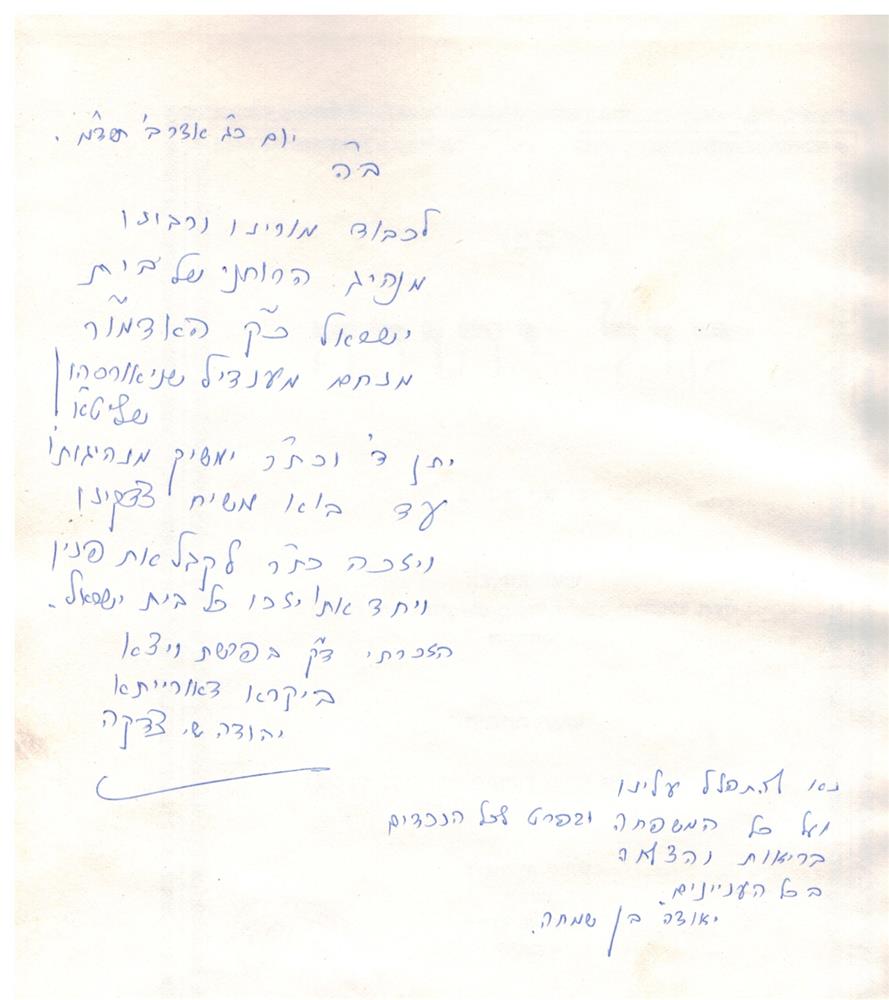 יום כ"ג אדר ב' תשד"מ.
ב"ה
לכבוד מורינו ורבוינו
מנהיג הרוחני של בית
ישראל כ"ק האדמו"ר
מנחם מענדיל שניאורסהן
שליט"א
יתן ד' וכת"ר ימשיך מנהיגותו
עד בוא משיח צדקינו
ויזכה כת"ר לקבל את פניו
ויחד אתו יזכו כל בית ישראל.
הזכרתי ד"ק בפרשת ויצא
ביקרא דאורייתא
יהודה שי צדקה
נא להתפלל עלינו
ועל כל המשפחה ובפרט לכל הנכדים
בריאות והצלחה
בכל העניינים.
יאודה בן שמחה.